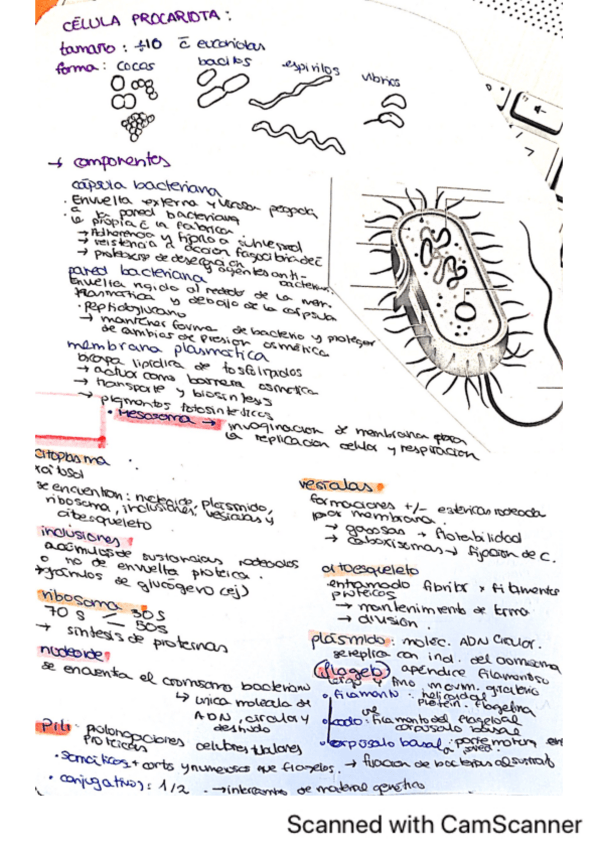 CÉLULA PROCARIOTA:
tamaño: ÷10 c̄ eucariotas
forma: cocos bacilos espirilos vibrios
→ componentes
cápsula bacteriana
· Envuelta externa y viscosa pegada
a la pared bacteriana
· la propia c̄ la fabrica
→ Adherencia y
→ resistencia a acción fagocitica de c
→ protección de desecación y agentes anti-
bacterian.
pared bacteriana
Envuelta rigida al rededor de la mem.
plasmática y debajo de la cápsula
· Peptidoglucano
→ mantener forma de bacteria y proteger
de cambios de presión osmótica
membrana plasmática
bicapa lipídica de fosfolípidos
→ actúa como barrera osmótica
→ transporte y biosíntesis
→ pigmentos fotosintéticos
· Mesosoma → invaginación de membrana para
la replicación celular y respiración
citoplasma
citosol
se encuentran: nucleoide, plásmido,
ribosoma, inclusiones, vesículas y
citoesqueleto
inclusiones
acúmulos de sustancias rodeados
o no de envuelta proteica.
→ gránulos de glucógeno (ej)
ribosoma
70 S 30 S
50 S
→ síntesis de proteínas
nucleoide
se encuentra el cromosoma bacteriano
↳ unica molécula de
ADN, circular y
desnudo
vesículas
formaciones +/- esféricas rodeada
por membrana.
→ gaseosas → flotabilidad
→ carboxisomas → fijación de C.
citoesqueleto
entramado fibrilar y filamentos
proteicos
→ mantenimiento de forma
→ división.
plásmido: moléc. ADN circular.
se replica con ind. del cromosoma
(flagelo) apéndice filamentoso
largo y fino movm. giratorio
· filamento: helicoidal
de protein. flagelina
· codo: filamento del flagelo al
corpúsculo basal
· corpúsculo basal: parte motora en
Pili: prolongaciones celulares tubulares
proteicas
· somáticos + corto y numerosos que flagelos. → fijación de bacterias al sustrato
· conjugativos: 1/2. → intercambio de material genético
Scanned with CamScanner